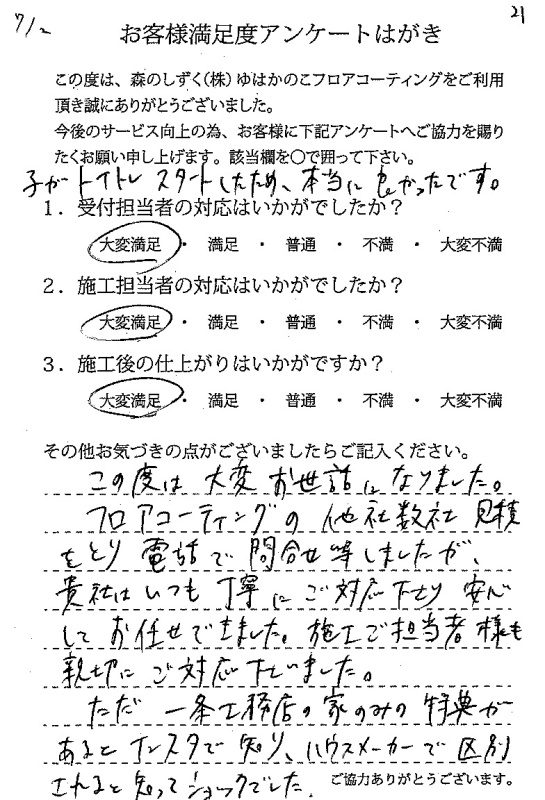 7/2
21
お客様満足度アンケートはがき
この度は、森のしずく(株)ゆはかのこフロアコーティングをご利用
頂き誠にありがとうございました。
今後のサービス向上の為、お客様に下記アンケートへご協力を賜り
たくお願い申し上げます。該当欄を○で囲って下さい。
子がトイトレスタートしたため、本当に良かったです。
1．受付担当者の対応はいかがでしたか？
大変満足 ・ 満足 ・ 普通 ・ 不満 ・ 大変不満
2．施工担当者の対応はいかがでしたか？
大変満足 ・ 満足 ・ 普通 ・ 不満 ・ 大変不満
3．施工後の仕上がりはいかがですか？
大変満足 ・ 満足 ・ 普通 ・ 不満 ・ 大変不満
その他お気づきの点がございましたらご記入ください。
この度は大変お世話になりました。
フロアコーティングの他社数社見積
をとり電話で問合せ等しましたが、
貴社はいつも丁寧にご対応下さり安心
してお任せできました。施工ご担当者様も
親切にご対応下さいました。
ただ一条工務店の家のみの特典が
あるとインスタで知り、ハウスメーカーで区別
されると知ってショックでした。
ご協力ありがとうございます。